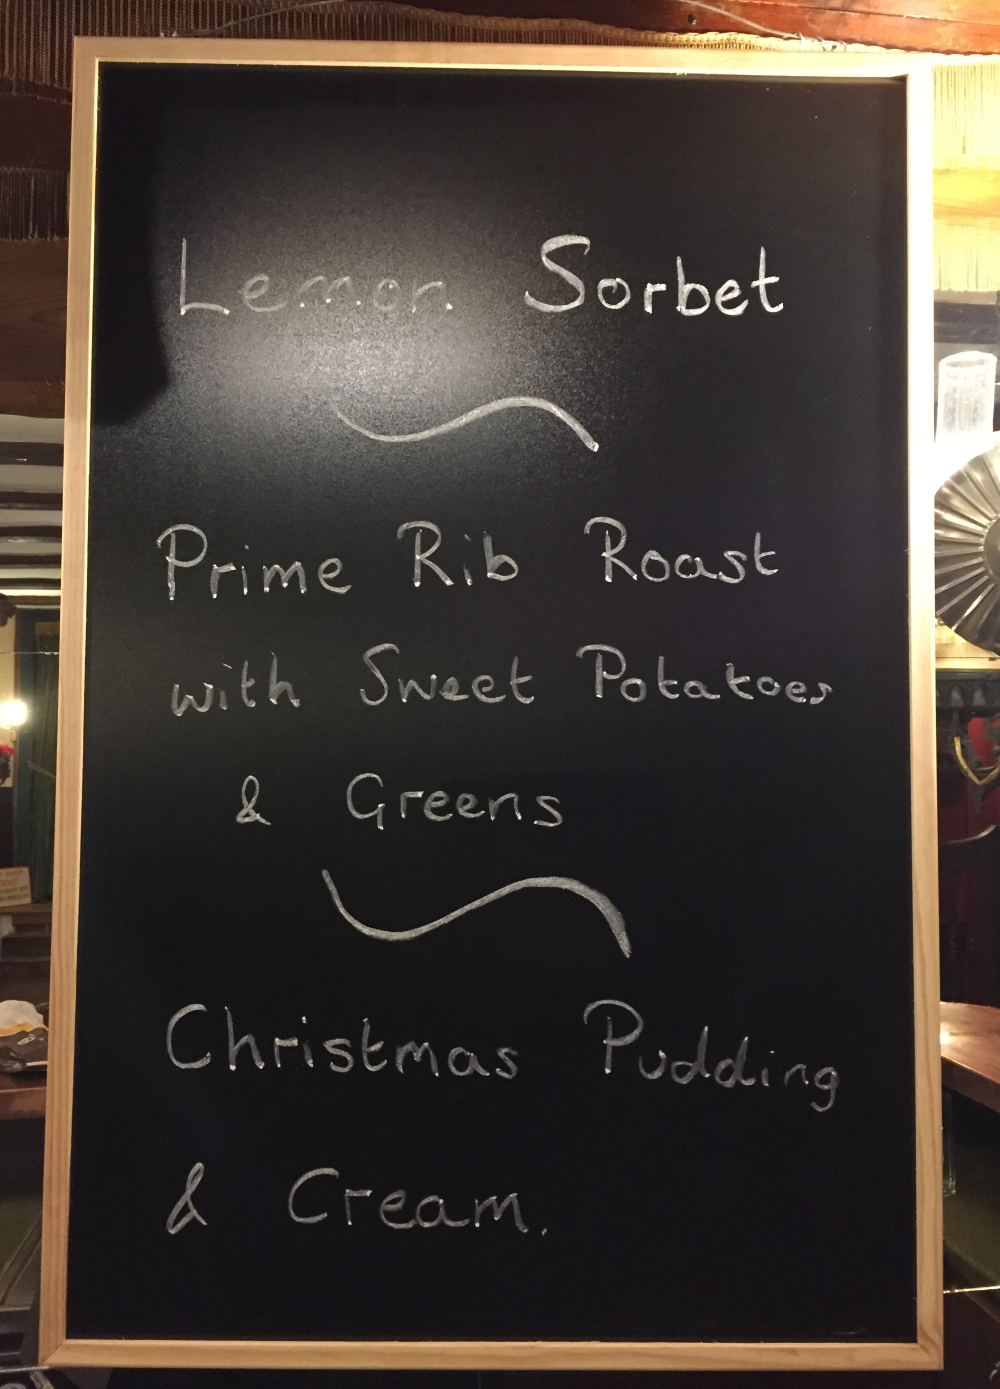 Lemon Sorbet
Prime Rib Roast
with Sweet Potatoes
& Greens
Christmas Pudding
& Cream.